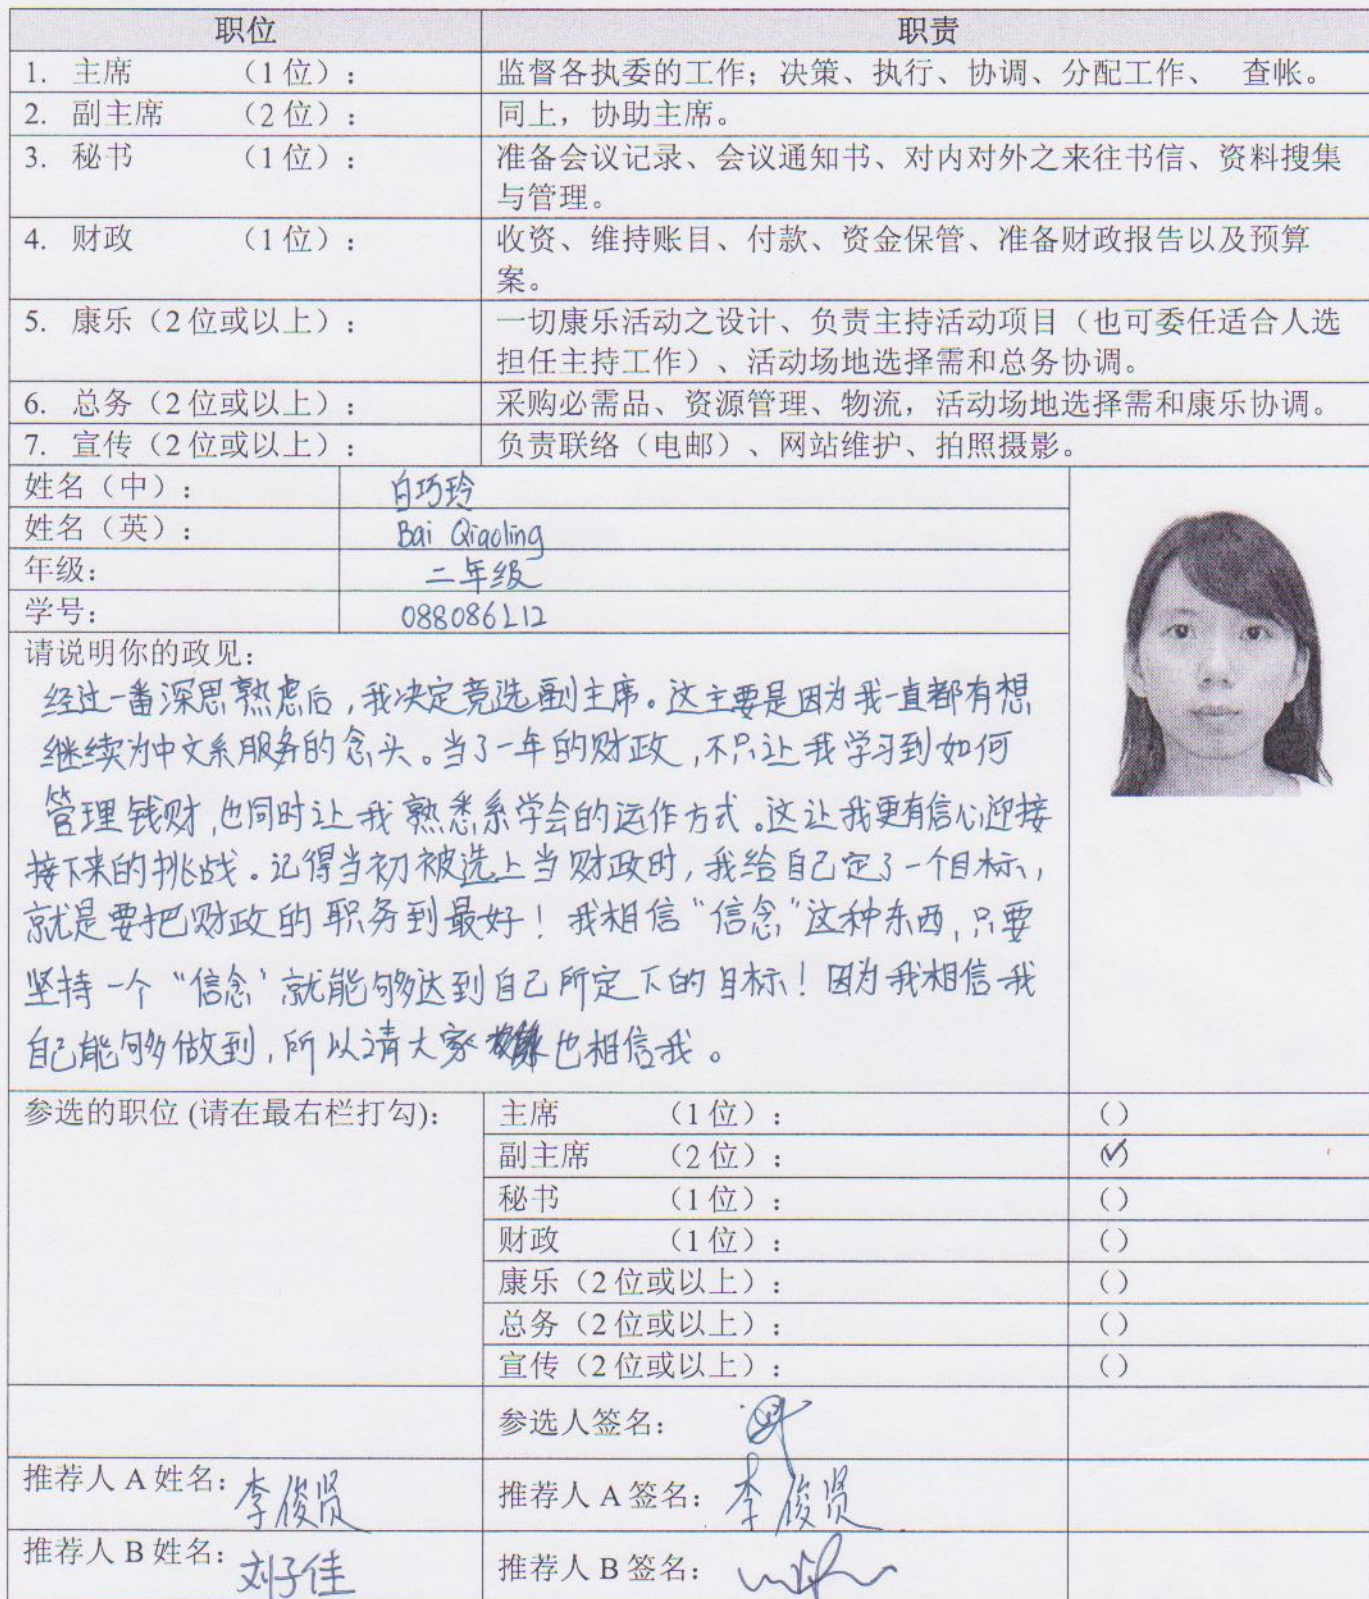 职位 职责
1. 主席 （1位）： 监督各执委的工作；决策、执行、协调、分配工作、 查帐。
2. 副主席 （2位）： 同上，协助主席。
3. 秘书 （1位）： 准备会议记录、会议通知书、对内对外之来往书信、资料搜集
与管理。
4. 财政 （1位）： 收资、维持账目、付款、资金保管、准备财政报告以及预算
案。
5. 康乐（2位或以上）： 一切康乐活动之设计、负责主持活动项目（也可委任适合人选
担任主持工作）、活动场地选择需和总务协调。
6. 总务（2位或以上）： 采购必需品、资源管理、物流，活动场地选择需和康乐协调。
7. 宣传（2位或以上）： 负责联络（电邮）、网站维护、拍照摄影。
姓名（中）： 白巧玲
姓名（英）： Bai Qiaoling
年级： 二年级
学号： 088086L12
请说明你的政见：
经过一番深思熟虑后，我决定竞选副主席。这主要是因为我一直都有想
继续为中文系服务的念头。当了一年的财政，不只让我学习到如何
管理钱财，也同时让我熟悉系学会的运作方式。这让我更有信心迎接
接下来的挑战。记得当初被选上当财政时，我给自己定了一个目标，
就是要把财政的职务到最好！我相信“信念”这种东西，只要
坚持一个“信念”就能够达到自己所定下的目标！因为我相信我
自己能够做到，所以请大家也相信我。
参选的职位 (请在最右栏打勾)： 主席 （1位）： ( )
副主席 （2位）： (✓)
秘书 （1位）： ( )
财政 （1位）： ( )
康乐（2位或以上）： ( )
总务（2位或以上）： ( )
宣传（2位或以上）： ( )
参选人签名：
推荐人 A 姓名：李俊贤 推荐人 A 签名：李俊贤
推荐人 B 姓名：刘子佳 推荐人 B 签名：